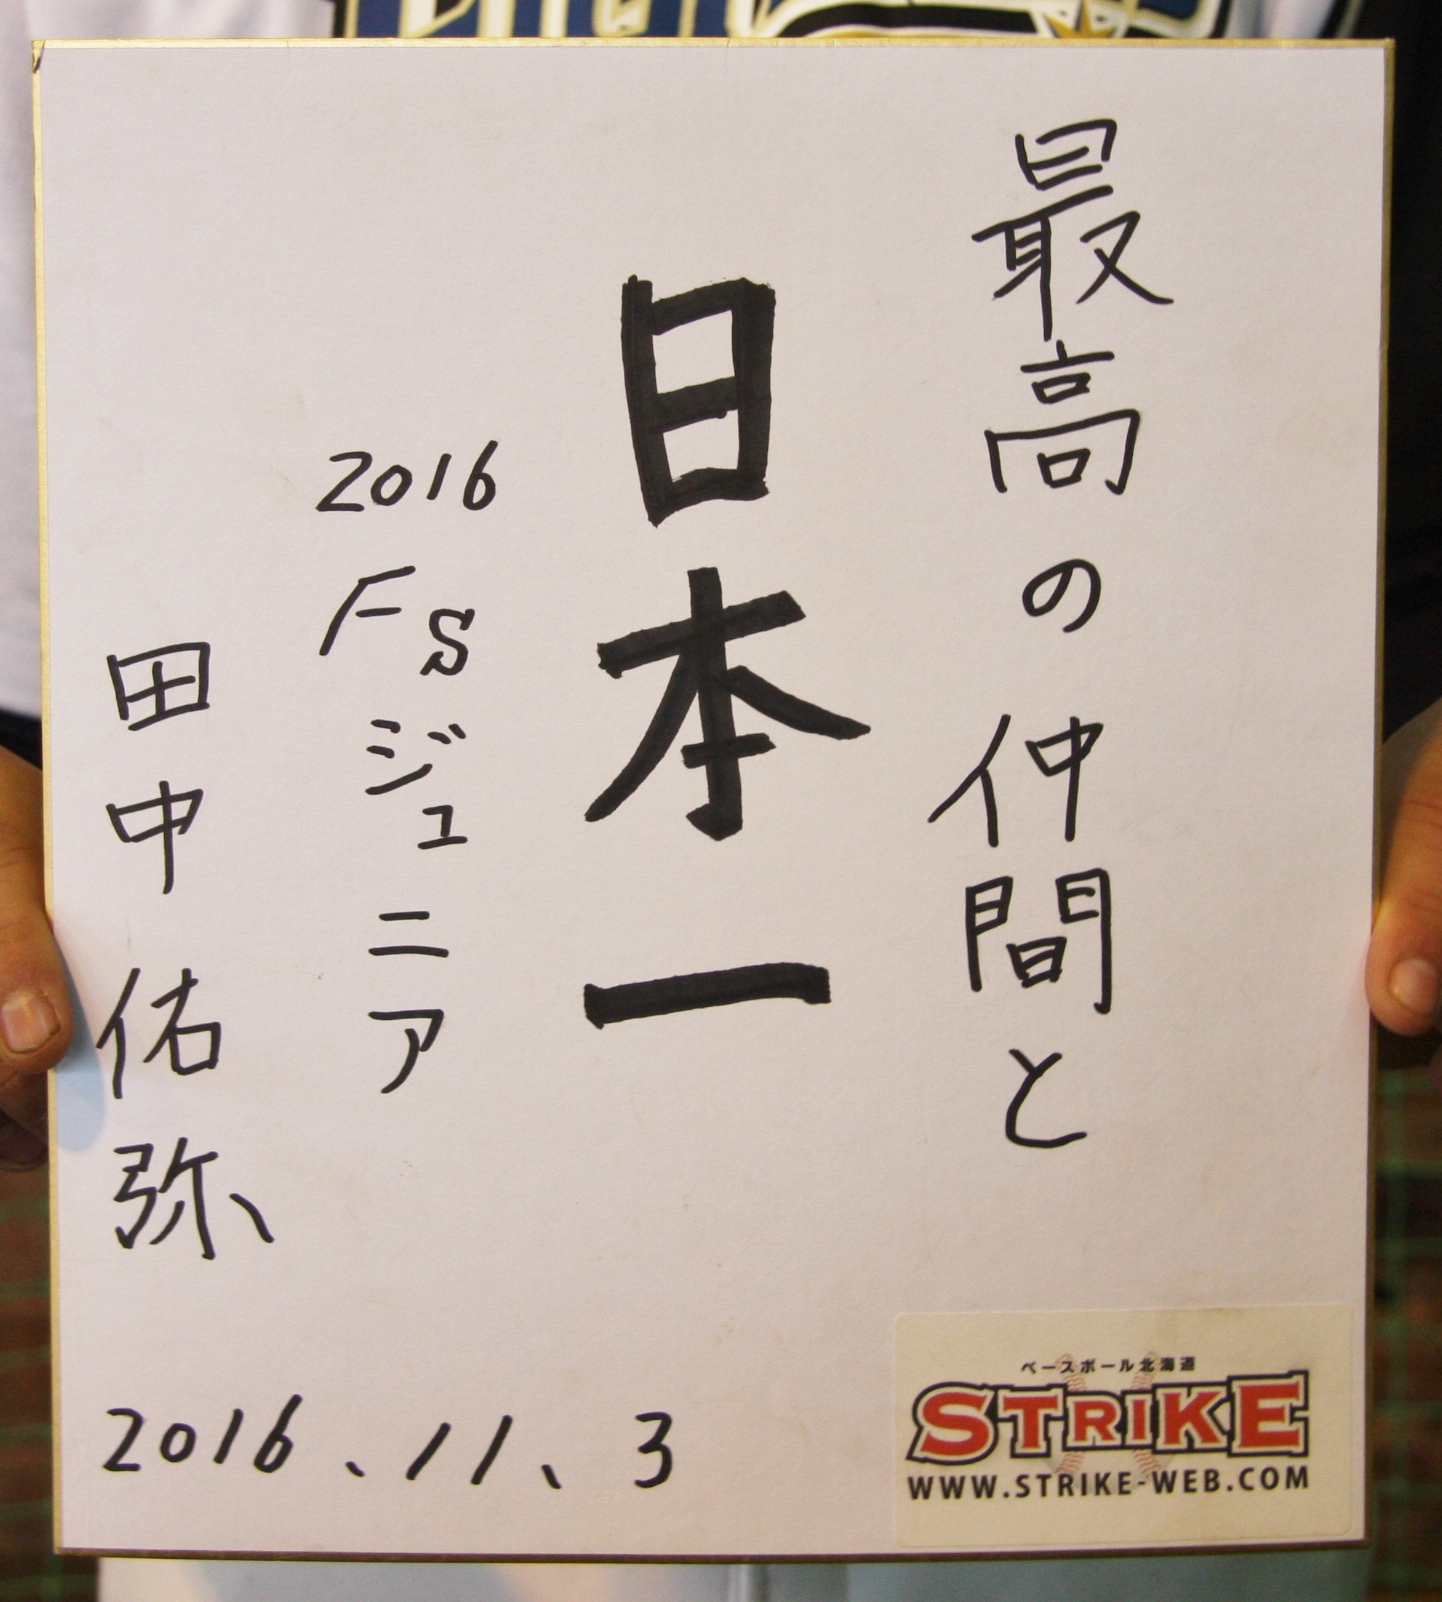 最高の仲間と
日本一
2016
Fsジュニア
田中佑弥
2016、11、3
ベースボール北海道
STRIKE
WWW.STRIKE-WEB.COM